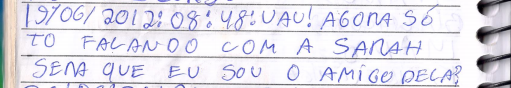 19/06/2012:08:48:UAU! AGORA SÓ
TO FALANDO COM A SARAH
SERA QUE EU SOU O AMIGO DELA?